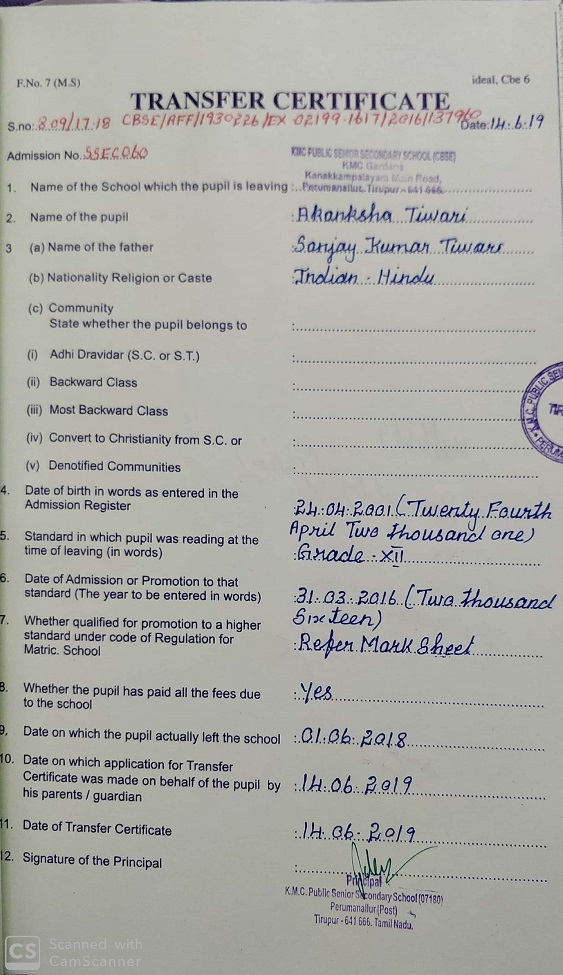 F.No. 7 (M.S)
ideal, Cbe 6
TRANSFER CERTIFICATE
S.no: 809/17-18 CBSE/AFF/1930226/EX 02199-1617/2016/137960 Date: 14.6.19
Admission No. SSEC060
KMC PUBLIC SENIOR SECONDARY SCHOOL (CBSE)
KMC Gardens
Kanakkampalayam Main Road,
1. Name of the School which the pupil is leaving : Perumanallur, Tirupur - 641 666.
2. Name of the pupil : Akanksha Tiwari
3 (a) Name of the father : Sanjay Kumar Tiwari
(b) Nationality Religion or Caste : Indian - Hindu
(c) Community
State whether the pupil belongs to :
(i) Adhi Dravidar (S.C. or S.T.) :
(ii) Backward Class :
(iii) Most Backward Class :
(iv) Convert to Christianity from S.C. or :
(v) Denotified Communities :
4. Date of birth in words as entered in the
Admission Register : 24.04.2001 (Twenty Fourth
April Two thousand one)
5. Standard in which pupil was reading at the
time of leaving (in words) : Grade - XII
6. Date of Admission or Promotion to that
standard (The year to be entered in words) : 31.03.2016 (Two thousand
Sixteen)
7. Whether qualified for promotion to a higher
standard under code of Regulation for
Matric. School : Refer Mark Sheet
8. Whether the pupil has paid all the fees due
to the school : Yes
9. Date on which the pupil actually left the school : 01.06.2018
10. Date on which application for Transfer
Certificate was made on behalf of the pupil by
his parents / guardian : 14.06.2019
11. Date of Transfer Certificate : 14.06.2019
12. Signature of the Principal :
Principal
K.M.C. Public Senior Secondary School (07180)
Perumanallur (Post)
Tirupur - 641 666. Tamil Nadu.
K.M.C. PUBLIC SEN
CS Scanned with
CamScanner